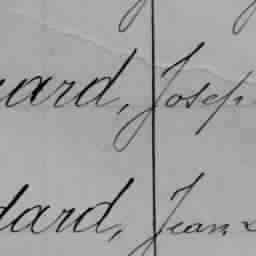 ard, Josep
dard, Jean